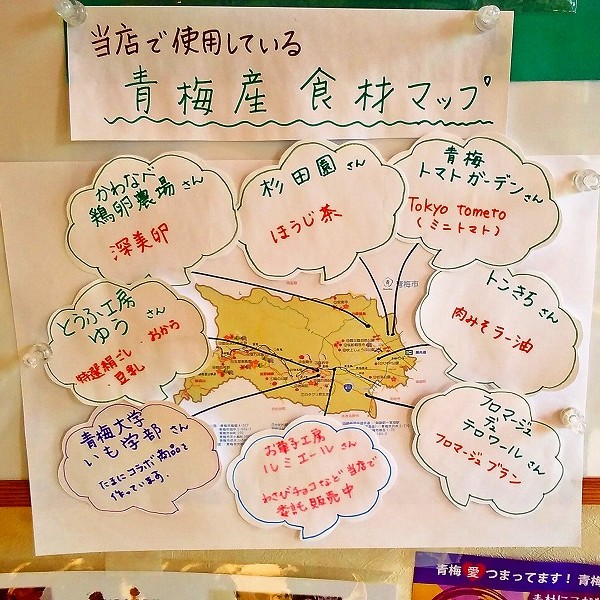 当店で使用している
青梅産食材マップ
かわなべ
鶏卵農場さん
深美卵
杉田園さん
ほうじ茶
青梅
トマトガーデンさん
Tokyo tometo
(ミニトマト)
とうふ工房
ゆうさん
おから
特選絹ごし
豆乳
トンきちさん
肉みそラー油
青梅大学
いも学部さん
たまにコラボ商品を
作っています.
お菓子工房
ルミエールさん
わさびチョコなど当店で
委託販売中
フロマージュ
デュ
テロワールさん
フロマージュブラン
青梅市
青梅愛つまってます!青梅